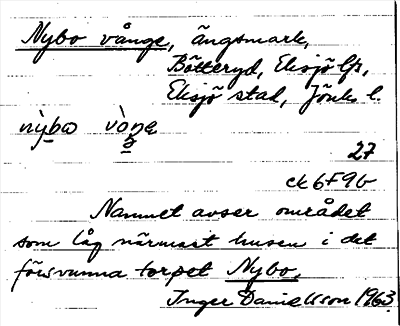 Nybo vånge, ängsmark,
Bötteryd, Eksjö lfs,
Eksjö stad, Jönk. l.
27
ek 6F9b
Namnet avser området
som låg närmast husen i det
försvunna torpet Nybo.
Inger Danielsson 1963.